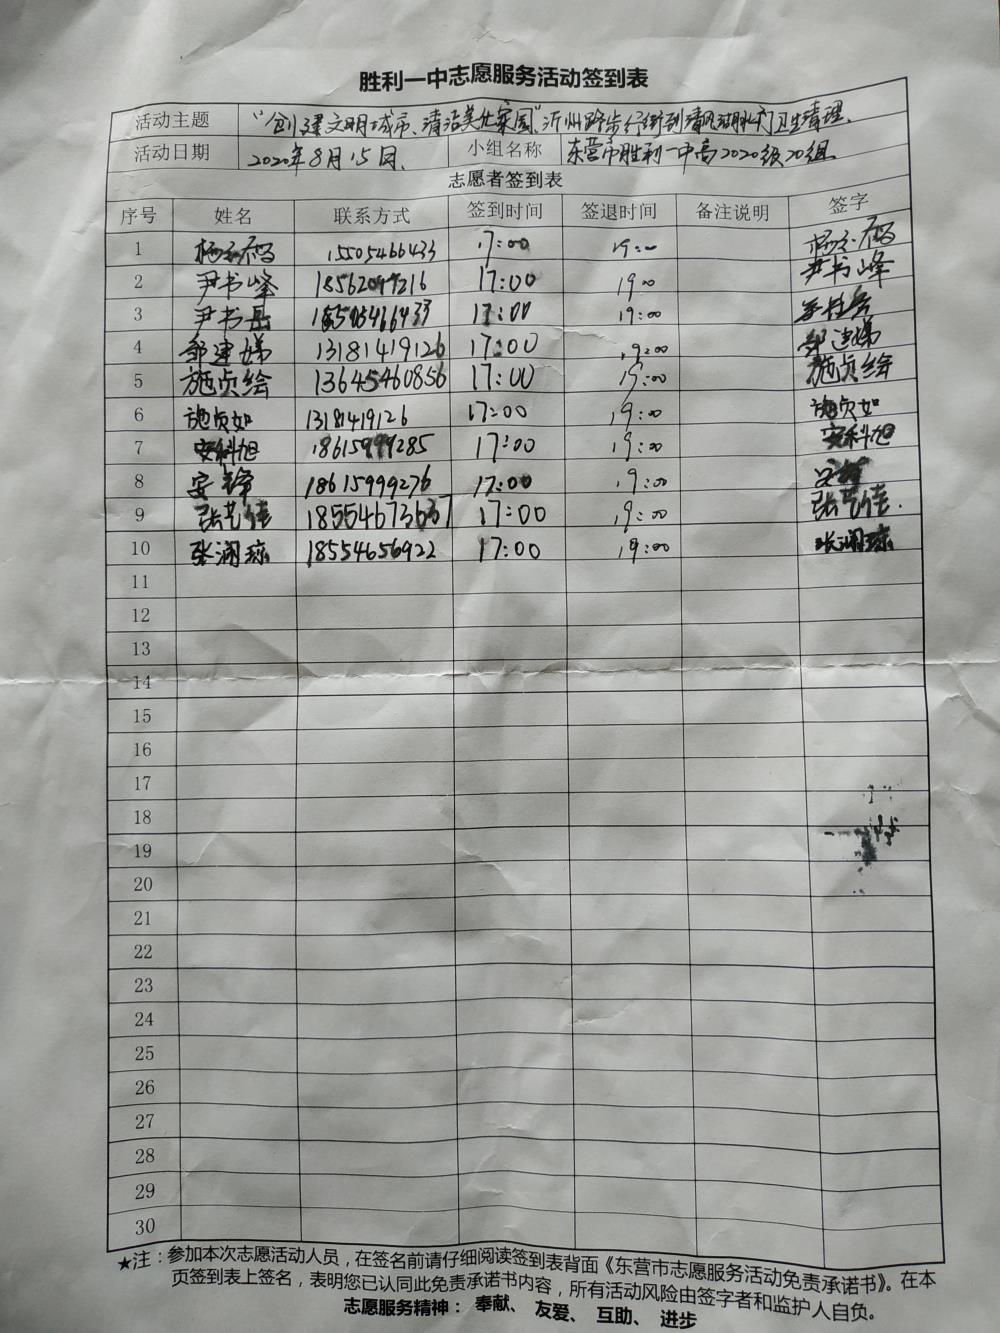 胜利一中志愿服务活动签到表
活动主题 "创建文明城市、清洁美化家园"沂州路步行街到清风湖北门卫生清理.
活动日期 2020年8月15日. 小组名称 东营市胜利一中高2020级20组
志愿者签到表
序号 姓名 联系方式 签到时间 签退时间 备注说明 签字
1 15505466433 17:00 19:00
2 尹书峰 17:00 1900 尹书峰
3 尹书岳 17:00 19:00
4 邹建娣 13181419126 17:00 19:00 邹建娣
5 施贞绘 13645460856 17:00 19:00 施贞绘
6 施贞如 13181419126 17:00 19:00 施贞如
7 安科旭 18615999285 17:00 19:00 安科旭
8 安锋 18615999276 17:00 19:00
9 张艺佳 17:00 19:00 张艺佳.
10 张澜琼 18554656922 17:00 19:00 张澜琼
11
12
13
14
15
16
17
18
19
20
21
22
23
24
25
26
27
28
29
30
★注：参加本次志愿活动人员，在签名前请仔细阅读签到表背面《东营市志愿服务活动免责承诺书》。在本
页签到表上签名，表明您已认同此免责承诺书内容，所有活动风险由签字者和监护人自负。
志愿服务精神： 奉献、 友爱、 互助、 进步